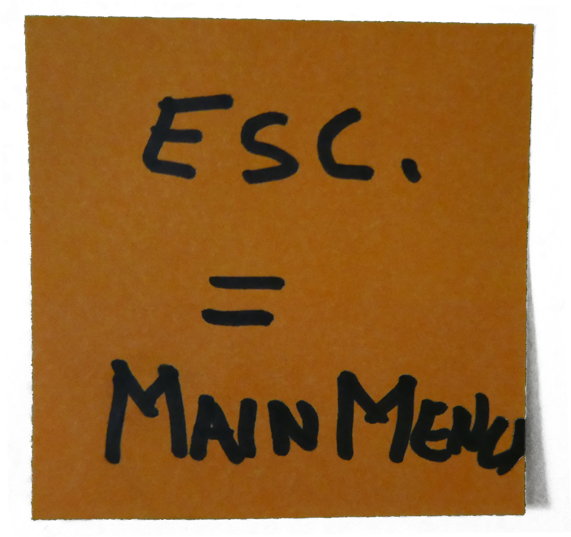 ESC.
=
MAIN MENU